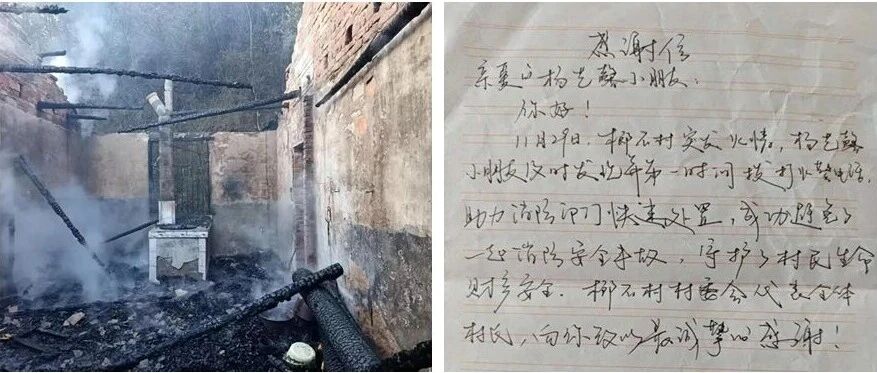 感谢信
亲爱的杨艺馨小朋友：
你好！
11月29日，椰石村突发火情，杨艺馨
小朋友及时发现并第一时间拨打火警电话，
助力消防部门快速处置，成功避免了
一起消防安全事故，守护了村民生命
财产安全。椰石村村委会代表全体
村民，向你致以最诚挚的感谢！